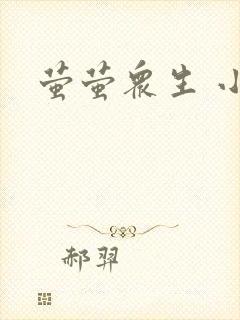 萤萤众生 小
郝羿